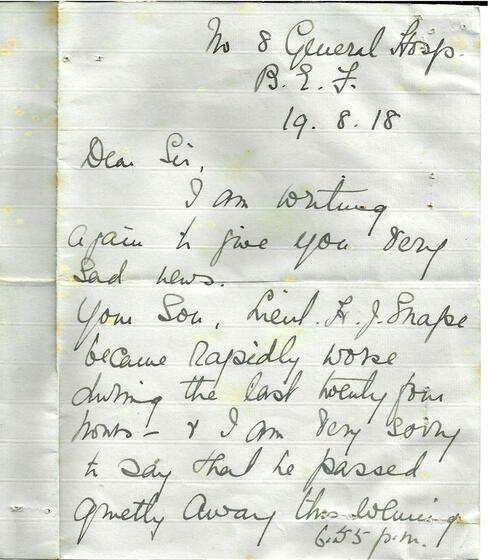 No 8 General Hosp.
B. E. F.
19. 8. 18
Dear Sir,
I am writing
again to give you very
sad news.
Your Son, Lieut. H. J. Snape
became rapidly worse
during the last twenty four
hours – & I am very sorry
to say that he passed
quietly away this evening
6.55 p.m.